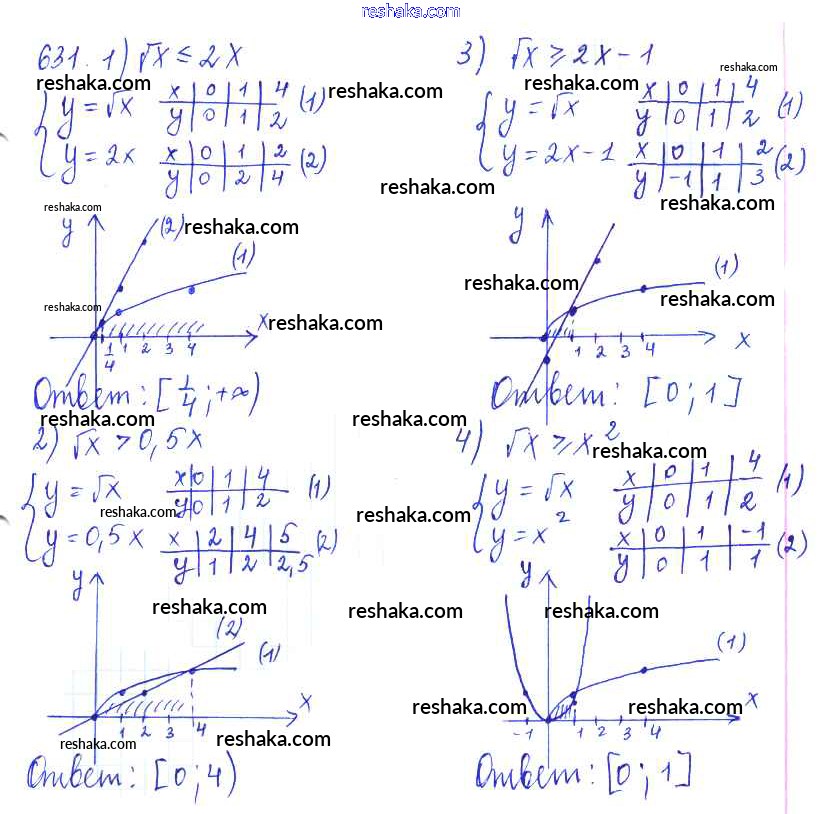 reshaka.com
631. 1) √x ≤ 2x
reshaka.com
y = √x x | 0 | 1 | 4 (1)
reshaka.com
y | 0 | 1 | 2
y = 2x x | 0 | 1 | 2 (2)
y | 0 | 2 | 4
reshaka.com
y (2) reshaka.com
(1)
reshaka.com
x reshaka.com
1/4 1 2 3 4
Ответ: [1/4; +∞)
reshaka.com
2) √x > 0,5x
y = √x x | 0 | 1 | 4 (1)
y | 0 | 1 | 2
reshaka.com
y = 0,5x x | 2 | 4 | 5 (2)
y | 1 | 2 | 2,5
y reshaka.com
(2)
(1)
x
1 2 3 4
reshaka.com
reshaka.com
Ответ: [0; 4)
3) √x ≥ 2x - 1
reshaka.com
y = √x x | 0 | 1 | 4 (1)
y | 0 | 1 | 2
y = 2x - 1 x | 0 | 1 | 2 (2)
y | -1 | 1 | 3
reshaka.com
reshaka.com
y
(1)
reshaka.com
reshaka.com
1 2 3 4 x
Ответ: [0; 1]
reshaka.com
4) √x ≥ x²
reshaka.com
y = √x x | 0 | 1 | 4 (1)
y | 0 | 1 | 2
reshaka.com
y = x² x | 0 | 1 | -1 (2)
y | 0 | 1 | 1
y
reshaka.com
(1)
reshaka.com
reshaka.com x
-1 1 2 3 4
Ответ: [0; 1]